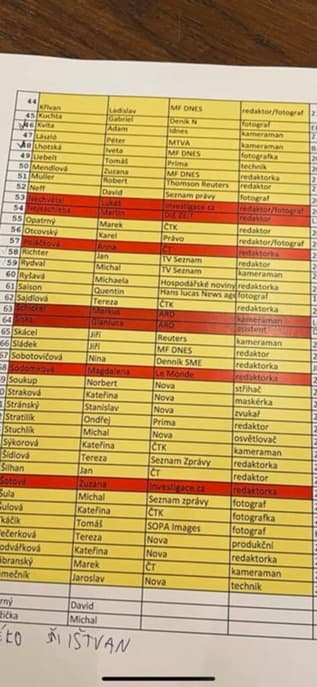 44 Křivan Ladislav MF DNES redaktor/fotograf
45 Kuchta Gabriel Deník N fotograf
46 Kvita Adam Idnes kameraman
47 László Péter MTVA kameraman
48 Lhotská Iveta MF DNES fotografka
49 Liebelt Tomáš Prima technik
50 Mendlová Zuzana MF DNES redaktorka
51 Muller Robert Thomson Reuters redaktor
52 Neff David Seznam právy fotograf
53 Nechvátal Lukáš Investigace.cz redaktor/fotograf
54 Martin DIE ZEIT redaktor
55 Opatrný Marek ČTK redaktor
56 Otcovský Karel Právo redaktor/fotograf
57 Anna ČT redaktorka
58 Richter Jan TV Seznam redaktor
59 Rydval Michal TV Seznam kameraman
60 Ryšavá Michaela Hospodářské noviny redaktorka
61 Saison Quentin Hans lucas News age fotograf
62 Sajdlová Tereza ČTK redaktorka
63 Schickel Markus ARD kameraman
64 Gianluca ARD asistent
65 Skácel Jiří Reuters kameraman
66 Sládek Jiří MF DNES redaktor
67 Sobotovičová Nina Denník SME redaktorka
68 Sodomková Magdalena Le Monde redaktorka
69 Soukup Norbert Nova střihač
Straková Kateřina Nova maskérka
Stránský Stanislav Nova zvukař
Stratilík Ondřej Prima redaktor
Stuchlík Michal Nova osvětlovač
Sýkorová Kateřina ČTK kameraman
Šídlová Tereza Seznam Zprávy redaktorka
Šilhan Jan ČT redaktor
Šotová Zuzana Investigace.cz redaktorka
Šula Michal Seznam zprávy fotograf
Šulová Kateřina ČTK fotografka
káčik Tomáš SOPA Images fotograf
ečerková Tereza Nova produkční
odvářková Kateřina Nova redaktorka
ábranský Marek ČT kameraman
emečník Jaroslav Nova technik
rný David
žička Michal
IŠTVAN